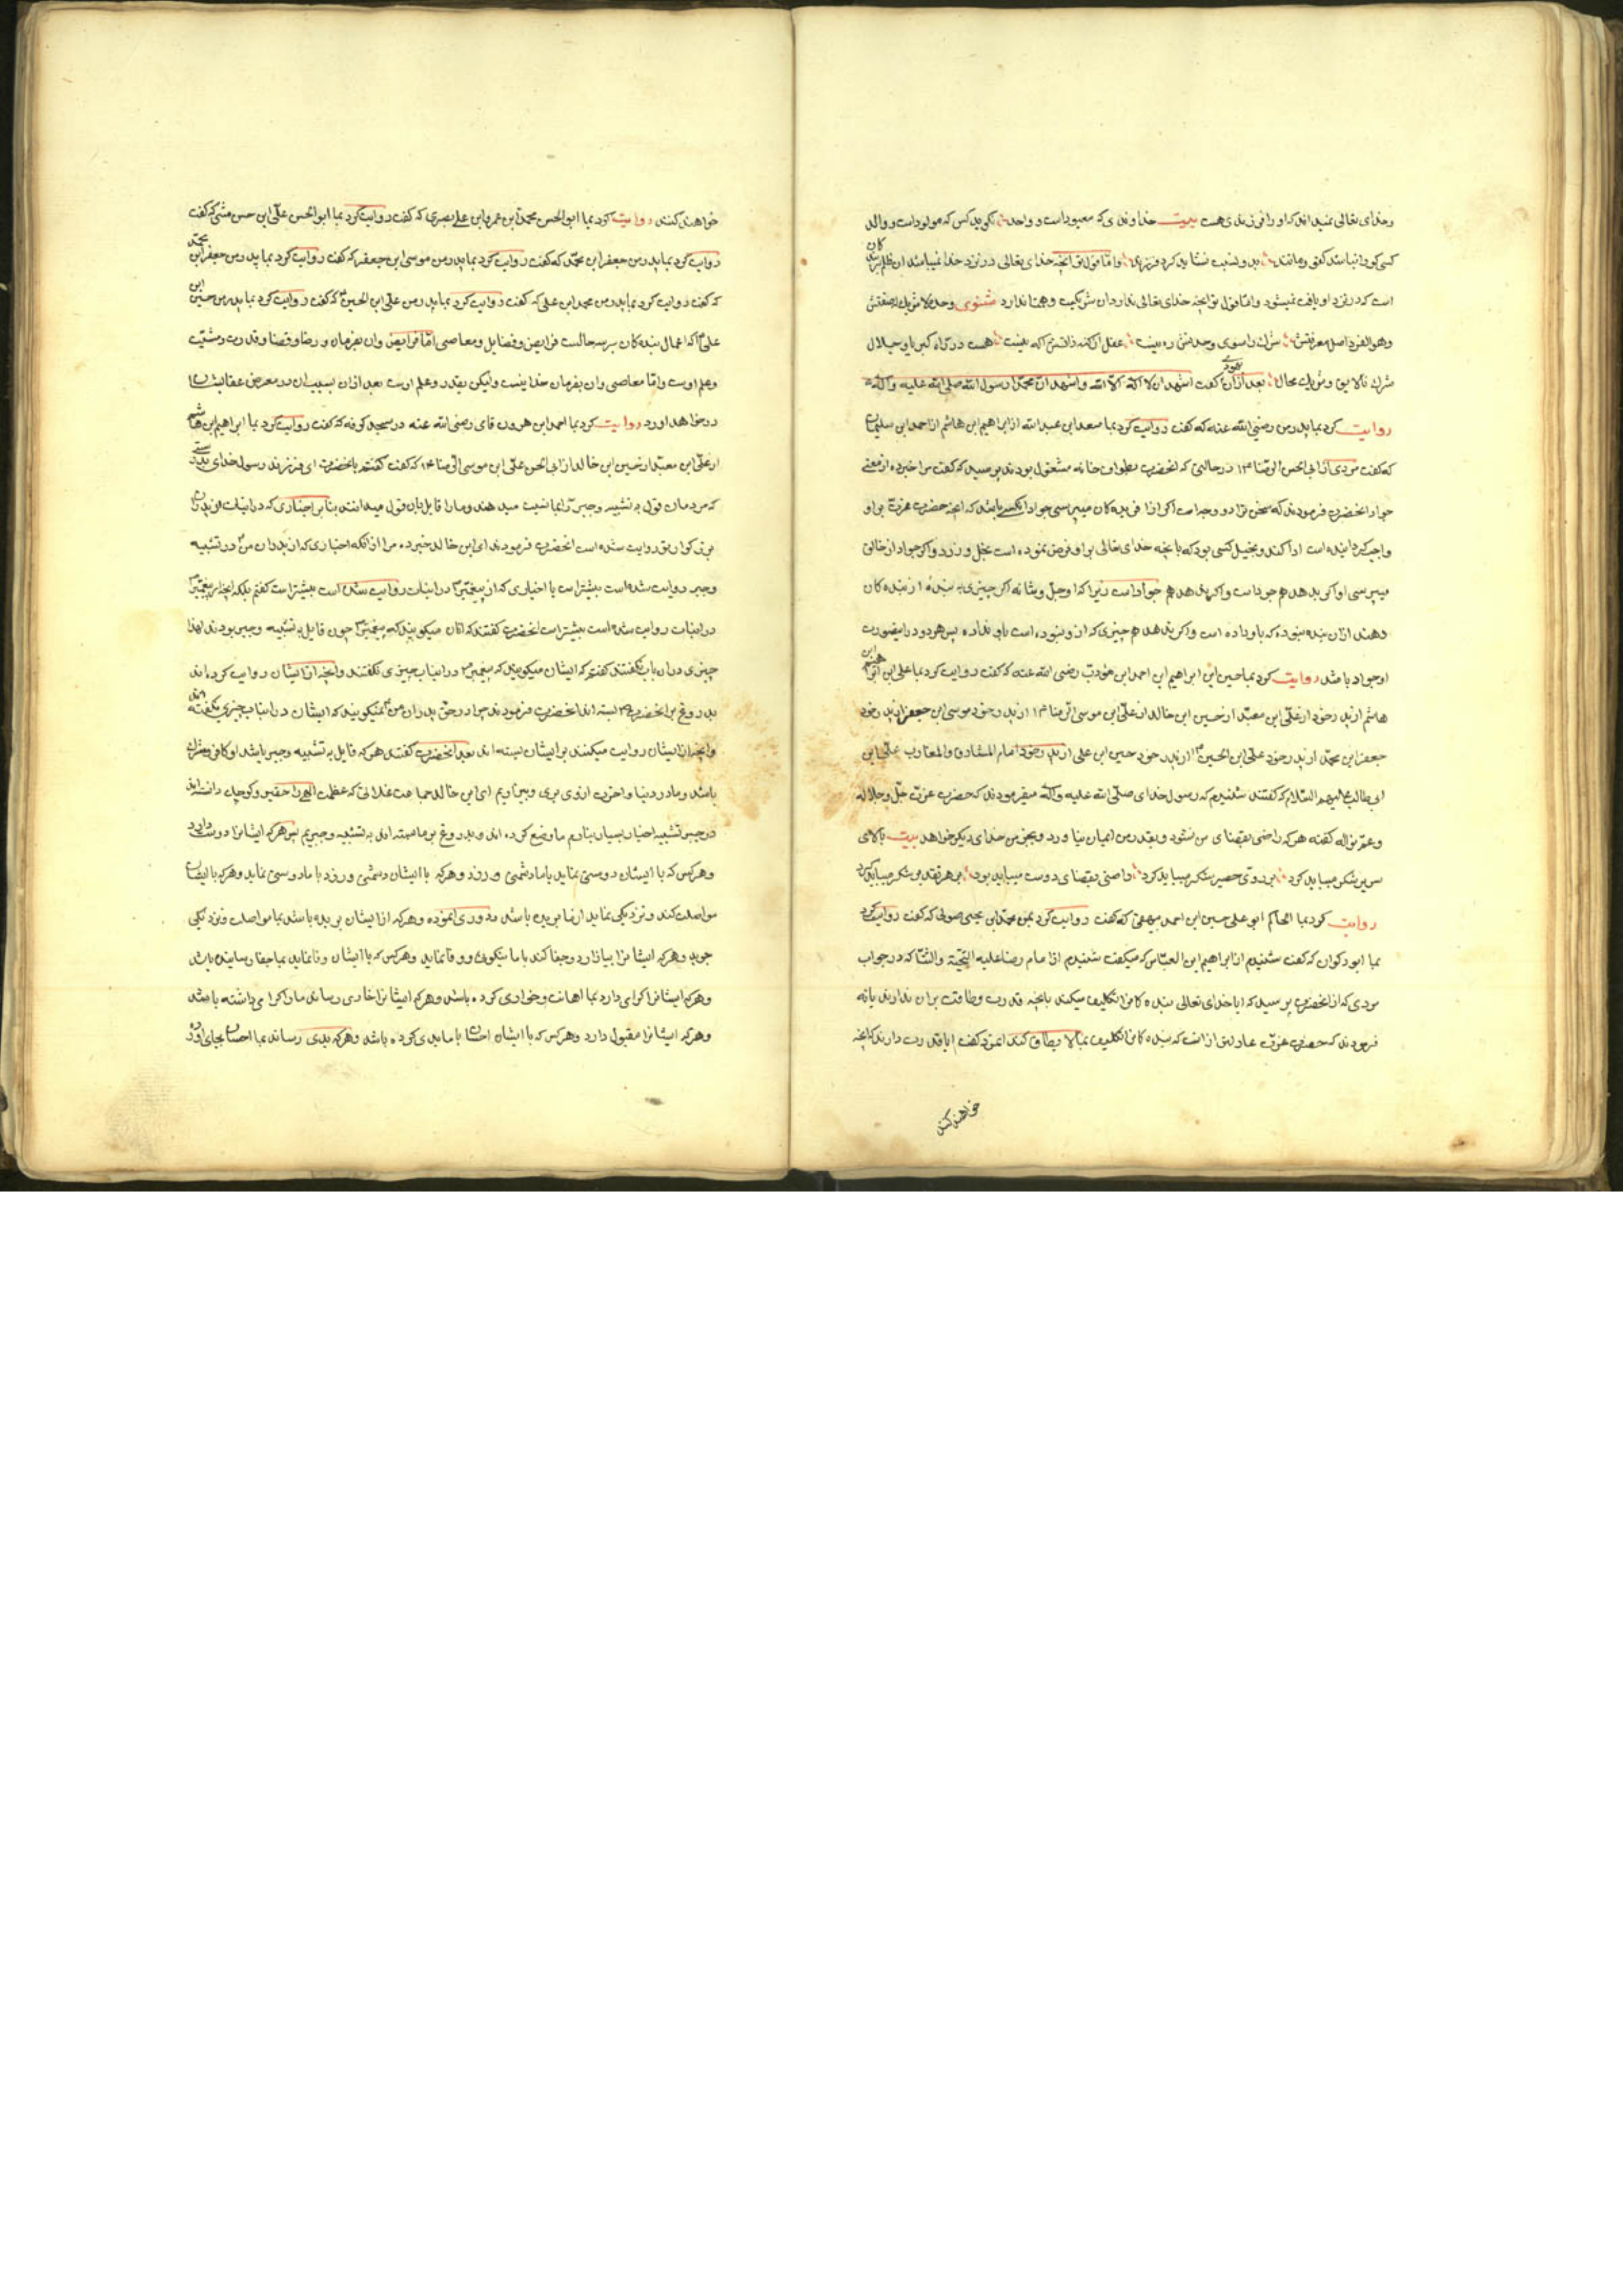 وخدای تعالی نمیداند که او را فرزندی هست بیت خداوندی که معبود است و واحد نگوید کس که مولود است و والد
کسی کو را نباشد کفو و مانند بدو نسبت نشاید کرد فرزند و اما قول تو آنچه خدای تعالی در نزد خدا نمیباشد ان ظلم بر بندکان
است که در نزد او یافت نمیشود و اما قول تو آنچه خدای تعالی ندارد ان شریکست و همتا ندارد مثنوی وحده لا شریک له صفتش
وهو الفرد اصل معرفتش شرک را سوی وحدتش ره نیست عقل از کنه ذاتش آکه نیست هست در کاه کبریا و جلال
شرک نالایق و شریک محال بعد ازان یهودی کفت اشهد ان لا اله الا الله و اشهد ان محمدا رسول الله صلی الله علیه و اله
روایت کرد بما پدر من رضی الله عنه که کفت روایت کرد بما سعد ابن عبدالله از ابراهیم ابن هاشم از احمد ابن سلیمان
که کفت مردی از ابی الحسن الرضا ع در حالتی که انحضرت بطواف خانه مشغول بودند پرسید که کفت مرا خبر ده از معنی
جواد انحضرت فرمودند که سخن ترا دو وجه است اکر از افریده کان میپرسی جواد انکسی باشد که انچه حضرت عزت بر او
واجب کردانیده است ادا کند و بخیل کسی بود که بانچه خدای تعالی بر او فرض نموده است بخل ورزد و اکر جواد از خالق
میپرسی او اکر بدهد هم جواد است و اکر ندهد هم جواد است زیرا که او جل و شانه اکر چیزی به بنده از بنده کان
دهند ازان بنده نبوده که باو داده است و اکر ندهد هم چیزی که ازو نبوده است باو نداده پس هر دو در اینصورت
او جواد باشد روایت کرد بما حسین ابن ابراهیم ابن احمد ابن مؤدب رضی الله عنه که کفت روایت کرد بما علی ابن ابراهیم ابن
هاشم از پدر خود از علی ابن معبد از حسین ابن خالد از علی ابن موسی الرضا ع از پدر خود موسی ابن جعفر از پدر خود
جعفر ابن محمد از پدر خود علی ابن الحسین ع از پدر خود حسین ابن علی از پدر خود امام المشارق و المغارب علی ابن
ابی طالب علیهم السلام که کفتند شنیدم که رسول خدای صلی الله علیه و اله میفرمودند که حضرت عزت جل و جلاله
و عم نواله کفته هر که راضی بقضای من نشود و بقدر من ایمان نیاورد و بجز من خدای دیکر خواهد بیت بالای
سریر شکر میباید کرد بر روی حصیر شکر میباید کرد راضی بقضای دوست میباید بود بر هر تقدیر شکر میباید کرد
روایت کرد بما الحاکم ابو علی حسین ابن احمد بیهقی که کفت روایت کرد بمن محمد ابن یحیی صولی که کفت روایت کرد
بما ابو ذکوان که کفت شنیدم از ابراهیم ابن العباس که میکفت شنیدم از امام رضا علیه التحیة و الثنا که در جواب
مردی که از انحضرت پرسید که ایا خدای تعالی بنده کانرا تکلیف میکند بانچه قدرت و طاقت بران ندارند یا نه
فرمودند که حضرت عزت عادلتر از انست که بنده کانرا تکلیف بما لا یطاق کند انمرد کفت ایا قدرت دارند که انچه
خواهند کنند
خواهند کنند روایت کرد بما ابو الحسن محمد ابن عمرو ابن علی بصری که کفت روایت کرد بما ابو الحسن علی ابن حسن مثنی که کفت
روایت کرد بما پدر من جعفر ابن محمد که کفت روایت کرد بما پدر من موسی ابن جعفر که کفت روایت کرد بما پدر من جعفر ابن محمد
که کفت روایت کرد بما پدر من محمد ابن علی که کفت روایت کرد بما پدر من علی ابن الحسین ع که کفت روایت کرد بما پدر من حسین ابن
علی ع که اعمال بنده کان بر سه حالست فرایض و فضایل و معاصی اما فرایض وان بفرمان و رضا و قضا و قدرت و مشیت
و علم اوست و اما معاصی وان بفرمان خدا نیست ولیکن بقدر و علم اوست بعد ازان بسبب ان در معرض عقابشان
در خواهد اورد روایت کرد بما احمد ابن هرون قای رضی الله عنه در مسجد کوفه که کفت روایت کرد بما ابراهیم ابن هاشم
از علی ابن معبد از حسین ابن خالد از ابی الحسن علی ابن موسی الرضا ع که کفت کفتم بانحضرت ای فرزند رسول خدای بدرستی
که مردمان قول به تشبیه و جبر را بما نسبت میدهند و ما را قایل بان قول میدانند بنا بر اخباری که دراینباب از پدران
بزرکوار تو روایت شده است انحضرت فرمودند ای ابن خالد خبر ده مرا از انکه اخباری که از پدران من ع در تشبیه
و جبر روایت شده است بیشتر است یا اخباری که از پیغمبر ص دراینباب روایت شده است بیشتر است کفتم بلکه انچه از پیغمبر ص
دراینباب روایت شده است بیشتر است انحضرت کفتند که انان میکویند که پیغمبر ص چون قایل به تشبیه و جبر بودند لهذا
چیزی دران باب نکفتند کفتم که ایشان میکویند که پیغمبر ص دراینباب چیزی نکفتند و انچه از ایشان روایت کرده اند
بدروغ بر انحضرت ص بسته اند انحضرت فرمودند چرا در حق پدران من ع نمیکویند که ایشان دراینباب چیزی نکفته اند
و انچه از ایشان روایت میکنند بر ایشان بسته اند بعد انحضرت کفتند هر که قایل به تشبیه و جبر باشد او کافر و مشرک
باشد و ما در دنیا و اخرت ازوی بری و بیزاریم ای ابن خالد جماعت غلاتی که عظمت الهی را حقیر و کوچک دانسته اند
در جبر و تشبیه اخبار بسیار بنام ما وضع کرده اند و بدروغ بر ما بسته اند به تشبیه و جبریم پس هر که ایشانرا دوست دارد
و هر کس که با ایشان دوستی نماید با ما دشمنی ورزد و هر که با ایشان دشمنی ورزد با ما دوستی نماید و هر که با ایشان
مواصلت کند و نزدیکی نماید از ما بریده باشد و دوری نموده و هر که از ایشان بریده باشد بما مواصلت و نزدیکی
جوید و هر که ایشانرا بیازارد و جفا کند با ما نیکوئی و وفا نماید و هر کس که با ایشان وفا نماید بما جفا رسانیده باشد
و هر که ایشانرا اکرامی دارد بما اهانت و خواری کرده باشد و هر که ایشانرا خاری رساند ما را اکرامی داشته باشد
و هر که ایشانرا مقبول دارد و هر کس که با ایشان احسان با ما بدی کرده باشد و هر که بدی رساند بما احسان بجای اورد